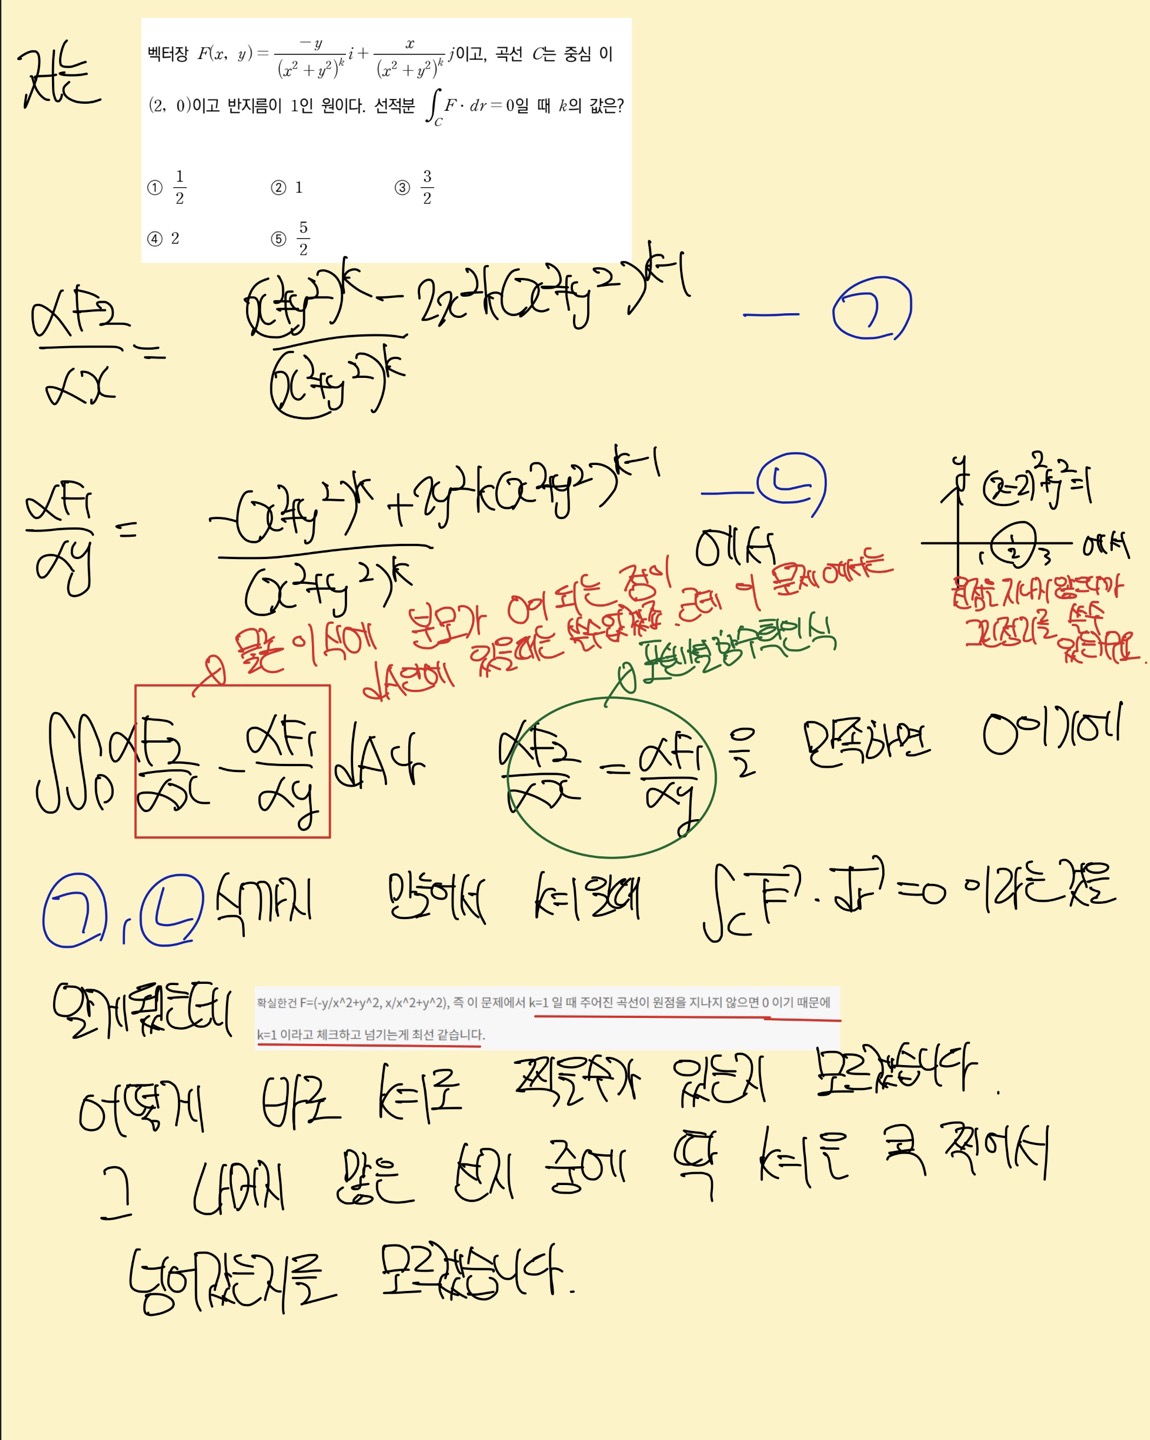 저는
벡터장 F(x, y) = \frac{-y}{(x^2+y^2)^k} i + \frac{x}{(x^2+y^2)^k} j이고, 곡선 C는 중심 이
(2, 0)이고 반지름이 1인 원이다. 선적분 ∫_C F · dr = 0일 때 k의 값은?
① 1/2 ② 1 ③ 3/2
④ 2 ⑤ 5/2
\frac{αF2}{αx} = \frac{(x^2+y^2)^k - 2x^2k(x^2+y^2)^{k-1}}{(x^2+y^2)^k} — ㉠
\frac{αF1}{αy} = \frac{-(x^2+y^2)^k + 2y^2k(x^2+y^2)^{k-1}}{(x^2+y^2)^k} — ㉡ 에서
y (x-2)^2+y^2=1
1 2 3 에서
원점을 지나지 않으니까
그린정리를 쓸수
있는거구요.
물론 이 식에 분모가 0이 되는 점이
dA안에 있을때는 쓸수없구요. 근데 이 문제에서는
포텐셜함수확인식
∬_D \frac{αF2}{αx} - \frac{αF1}{αy} dA 가 \frac{αF2}{αx} = \frac{αF1}{αy} 을 만족하면 0이기에
㉠, ㉡ 식까지 만들어서 k=1일때 ∫_C F · dr = 0 이라는것을
알게됬는데
확실한건 F=(-y/x^2+y^2, x/x^2+y^2), 즉 이 문제에서 k=1 일 때 주어진 곡선이 원점을 지나지 않으면 0 이기 때문에
k=1 이라고 체크하고 넘기는게 최선 같습니다.
어떻게 바로 k=1로 찍을수가 있는지 모르겠습니다.
그 나머지 많은 선지 중에 딱 k=1을 콕 찍어서
넘어갔는지를 모르겠습니다.